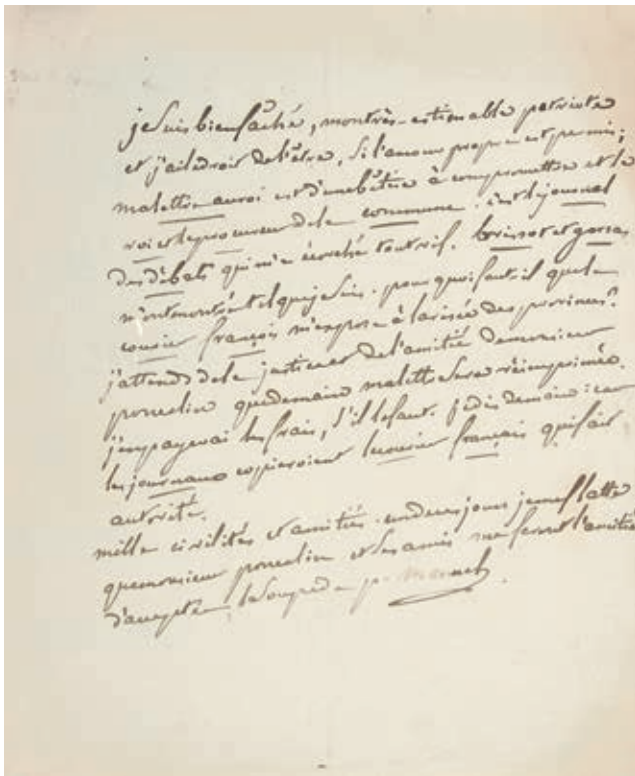 je suis bien faché, mon très-estimable patriote
et j'ai le droit de l'être, si l'amour propre est permis;
ma lettre au roi est d'une bêtise à compromettre et le
roi et le procureur de la commune. c'est le journal
des débats qui m'a écorché tout vif. brissot et gorsas
m'ont montré tel que je suis. pourquoi faut-il que le
courier françois m'expose à la risée des provinces?
j'attends de la justice et de l'amitié de monsieur
poncelin que demain ma lettre sera réimprimée.
j'en payerai les frais, s'il le faut. je dis demain: car
les journaux copieroient le courier français qui fait
autorité.
mille civilités et amitiés. un de ces jours je me flatte
que monsieur poncelin et ses amis me feront l'amitié
d'accepter la soupe de p. manuel